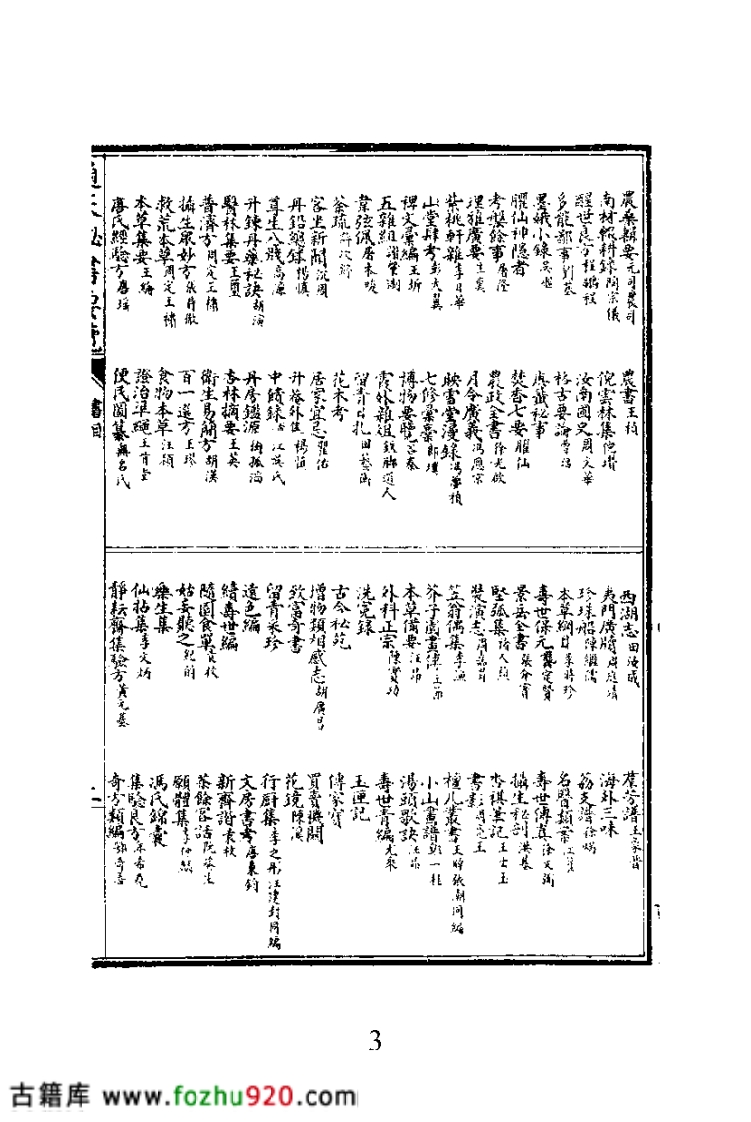 農桑輯要元司農司　農書王禎
南村輟耕錄陶宗儀　倪雲林集倪瓚
醒世良方程鵬程　汝南圃史周文華
多能鄙事劉基　格古要論曹昭
墨娥小錄吳繼　秘事
臞仙神隱書　焚香七要臞仙
考槃餘事屠隆　農政全書徐光啟
埤雅廣要牛衷　月令廣義馮應京
紫桃軒雜李日華　快雪堂漫錄馮夢禎
山堂肆考彭大翼　七修彙藁郎瑛
稗史彙編王圻　博物要覽谷泰
五雜組謝肇淛　霞外雜俎鐵腳道人
韋弦佩屠本畯　留青日札田藝蘅
茶疏許次紓　花木考
客坐新聞沈周　居家宜忌瞿佑
丹鉛總錄楊慎　升菴外集楊慎
尊生八牋高濂　中饋錄浦江吳氏
升鍊丹藥秘訣胡演　丹房鑑源獨孤滔
醫林集要王璽　杏林摘要王英
普濟方周定王橚　衛生易簡方胡濙
攝生眾妙方張時徹　百一選方王璆
救荒本草周定王橚　食物本草汪穎
本草集要王綸　證治準繩王肯堂
唐氏經驗方唐瑤　便民圖纂無名氏
西湖志田汝成　群芳譜王象晉
夷門廣牘周履靖　海外三珠
珍珠船陳繼儒　荔支譜徐𤊹
本草綱目李時珍　名醫類案江瓘
壽世保元龔定賢　壽世傳真徐文弼
景岳全書張介賓　攝生秘剖洪基
堅瓠集褚人穫　香祖筆記王士正
獎演志　書影周亮工
笠翁偶集李漁　檀几叢書王晫張潮同編
芥子園畫傳王節　小山畫譜鄒一桂
本草備要汪昂　湯頭歌訣汪昂
外科正宗陳實功　壽世青編尤乘
洗冤錄　玉匣記
古今秘苑　傳家寶
增物類相感志胡廣昌　買賣機關
致富奇書　花鏡陳淏
留青采珍　行廚集李之彤汪建封同編
遣色編　文房書考唐秉鈞
續壽世編　新齊諧袁枚
隨園食單袁枚　茶餘客話阮葵生
姑妄聽之紀昀　願體集李仲麟
樂生集　馮氏錦囊
仙拈集李文炳　集驗良方年希堯
靜耘齋集驗方黃元基　奇方類編吳奇善
書目
3
古籍库 www.fozhu920.com